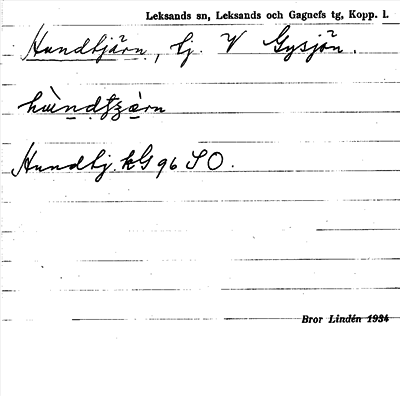 Leksands sn, Leksands och Gagnefs tg, Kopp. l.
Hundtjärn, tj. V Gysjön.
Hundtj. kG 96 SO.
Bror Lindén 1934